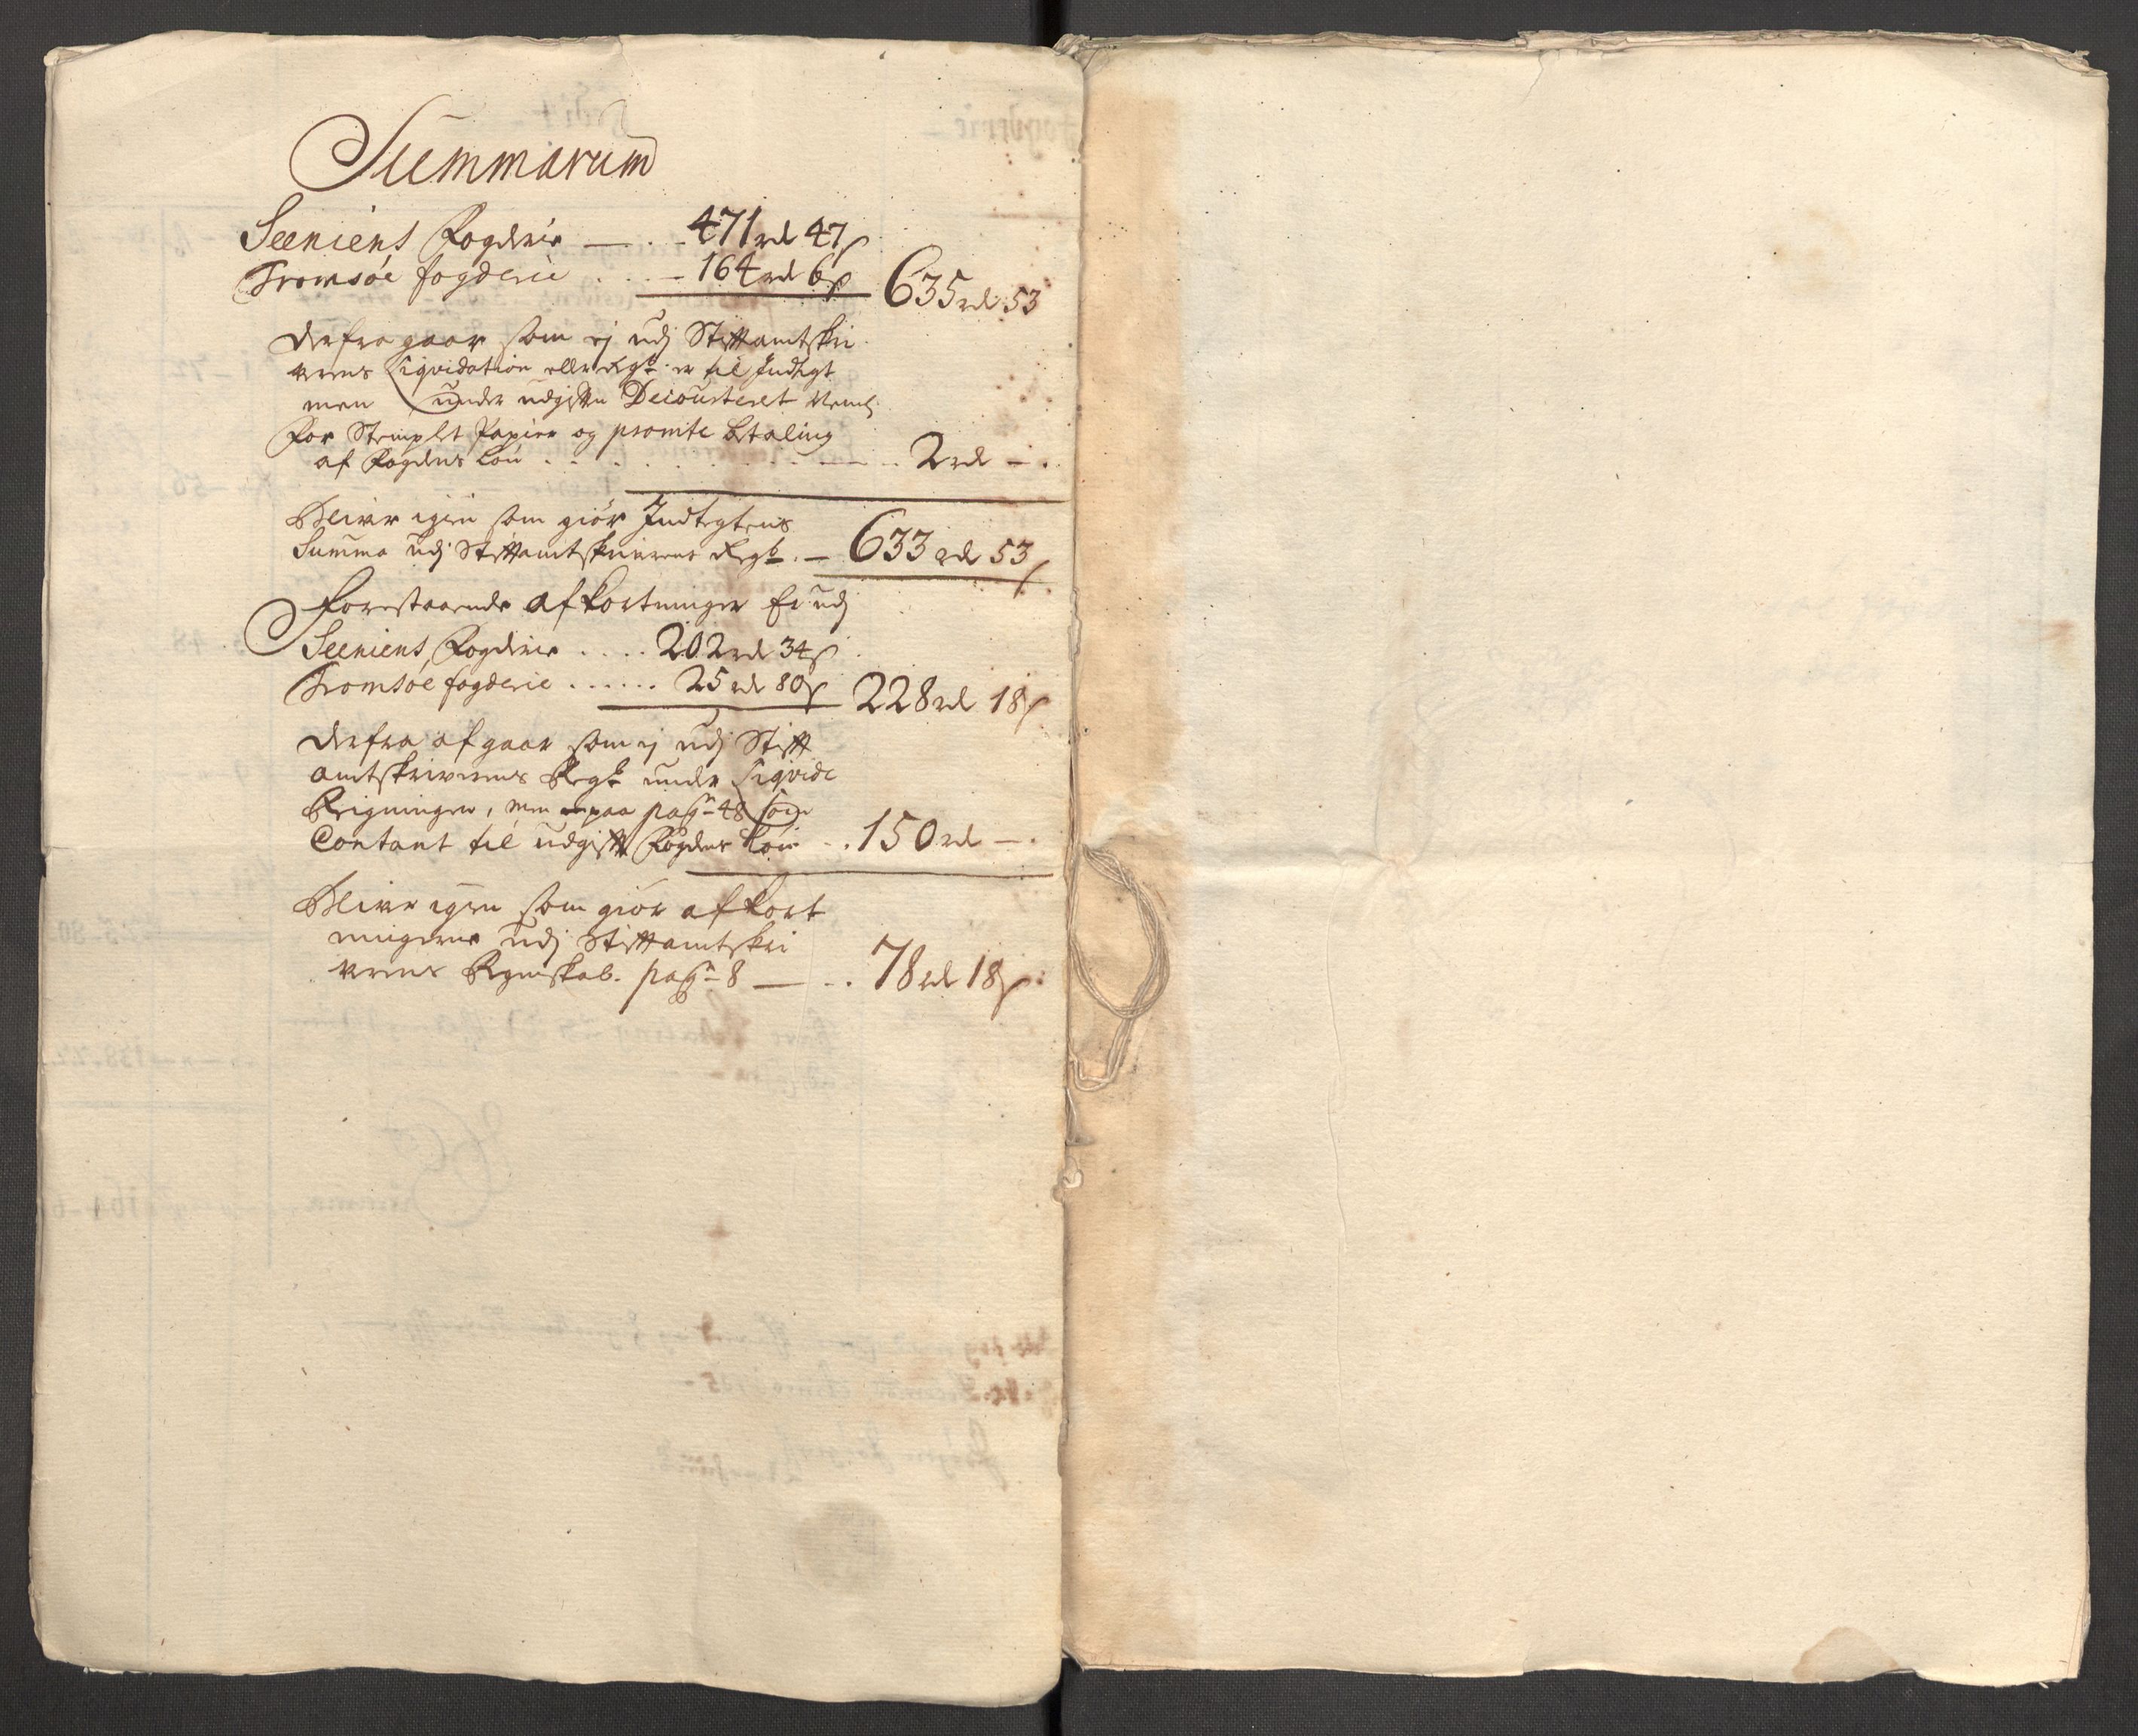 Summarum
Seeniens Fogderie — . - 471 rd 47 ß
Tromsøe fogderie . . . - 164 rd 6 ß 635 rd 53
Derfra gaar som ej udj Stiftamtskri
verens Liqvidation eller Regsk: er til Indtegt
men under udgiften Decourteret Neml:
For Stemplet Papiir og promte betaling
af Fogdens Løn . . . . . . . . — . . 2 rd — .
Bliver igien som giör Indtegtens
Summa udj Stiftamtskriverens Regsk. — 633 rd 53 ß
Forestaaende afkortninger Er udj
Seeniens Fogderie . . . . 202 rd 34 ß
Tromsøe fogderie . . . . . . 25 rd 80 ß 228 rd 18 ß
Derfra afgaar som ej udj Stift
amtskriverens Regsk under Liqvide
Reigningen, men paa pag 48 som
Contant til udgift Fogdens Løn . . 150 rd — .
Bliver igien som giör afkort
ningerne udj Stiftamtskri
verens Regnskab. pag 8 — . . 78 rd 18 ß